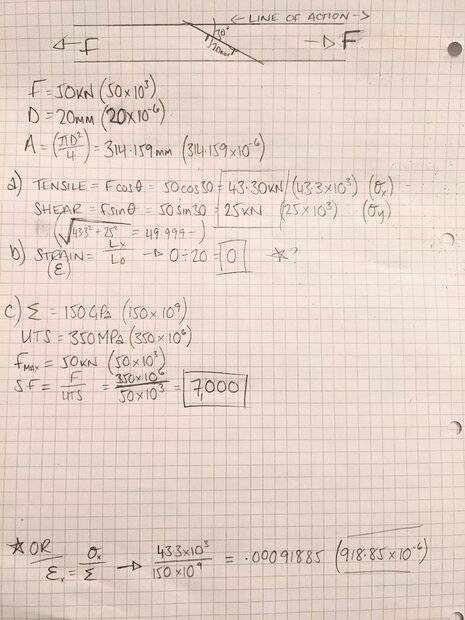 <- LINE OF ACTION ->
30°
20mm
F F
F = 50KN (50×10³)
D = 20mm (20×10⁻⁶)
A = (πD²/4) = 314.159mm (314.159×10⁻⁶)
a) TENSILE = Fcosθ = 50cos30 = 43.30KN (43.3×10³) (σx)
SHEAR = Fsinθ = 50sin30 = 25KN (25×10³) (σy)
(√43.3² + 25² = 49.999-)
b) STRAIN = Lx/Lo → 0÷20 = 0 ☆?
(ε)
c) Σ = 150GPa (150×10⁹)
UTS = 350MPa (350×10⁶)
fMAX = 50KN (50×10³)
SF = F/UTS = 350×10⁶/50×10³ = 7,000
☆OR
εx = σx/Σ → 433×10³/150×10⁹ = .00091885 (918.85×10⁻⁶)